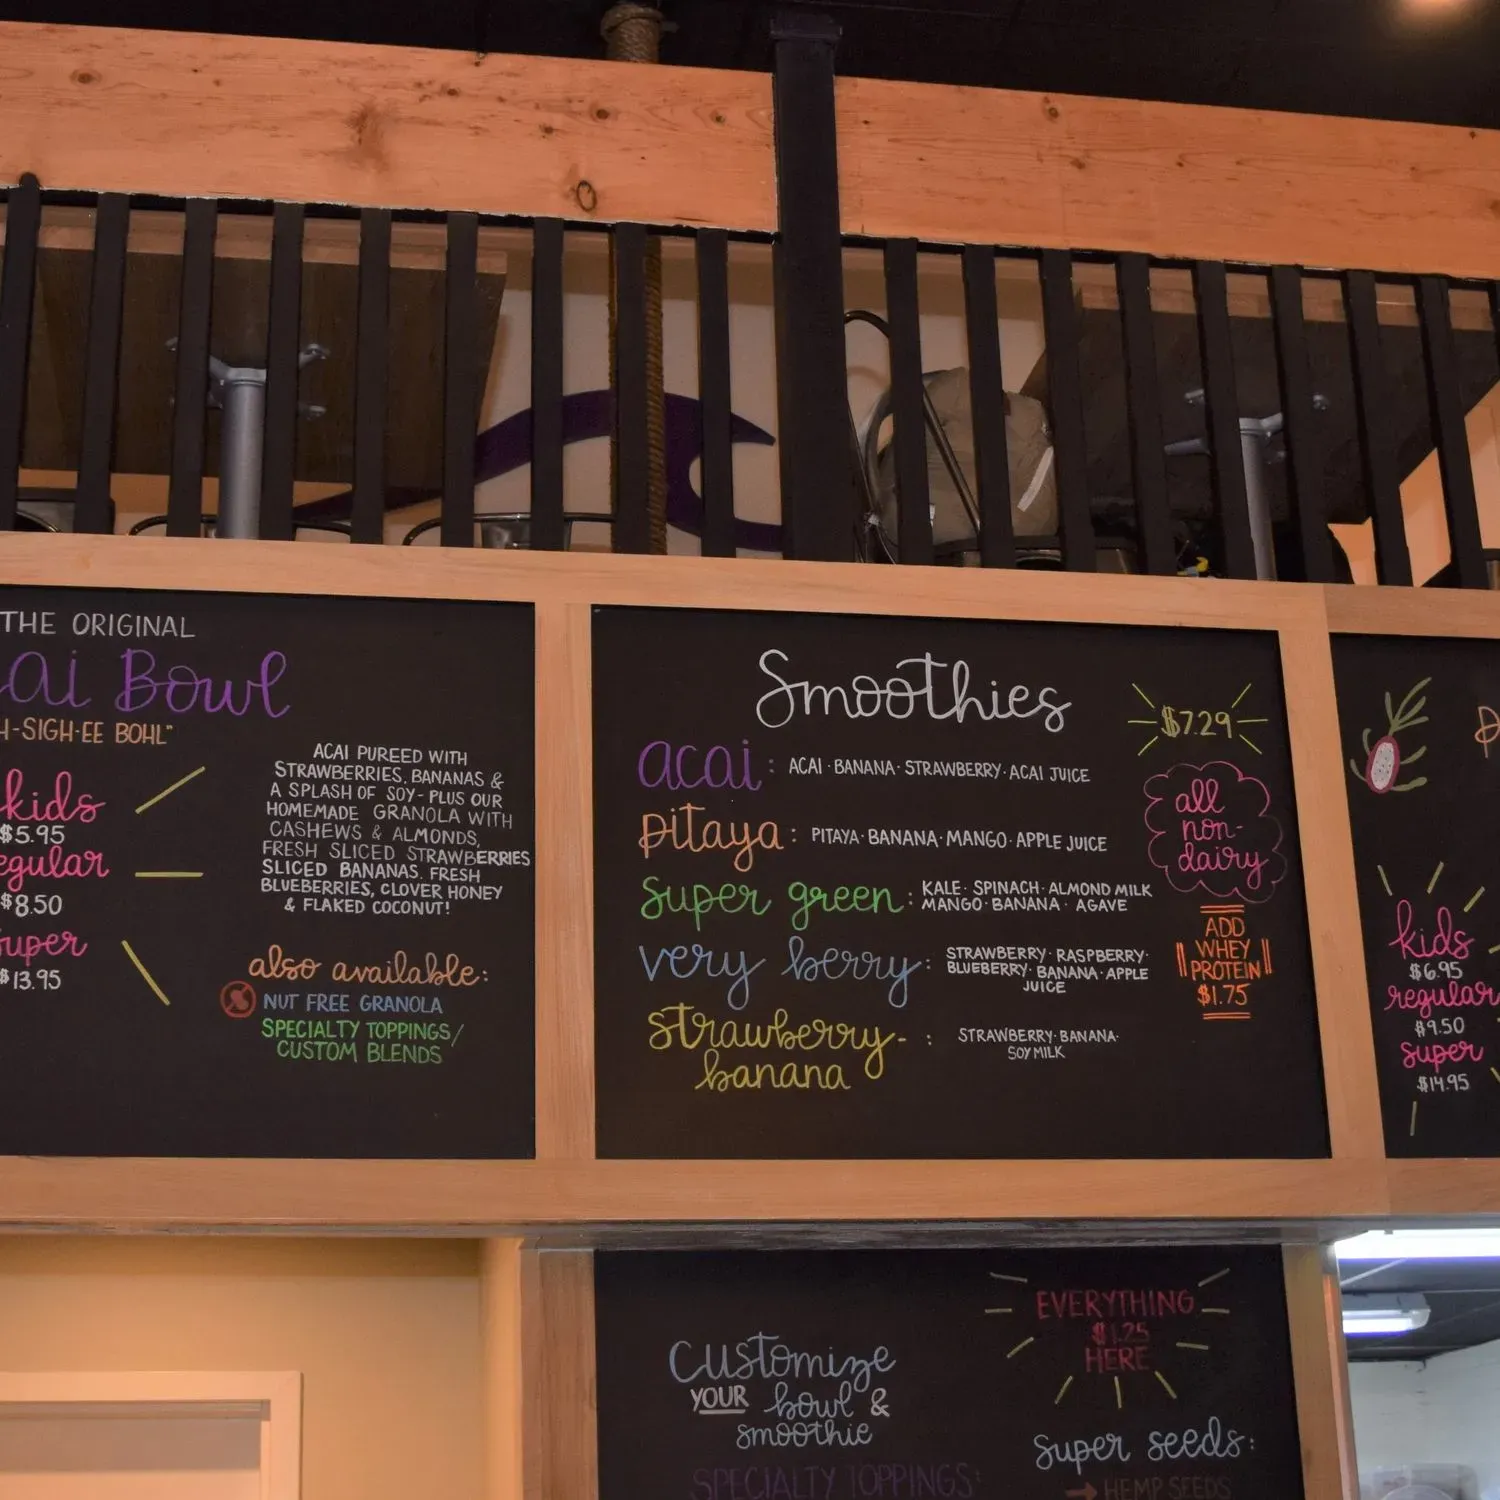 THE ORIGINAL
ai Bowl
H-SIGH-EE BOHL"
kids
$5.95
egular
$8.50
super
$13.95
ACAI PUREED WITH
STRAWBERRIES, BANANAS &
A SPLASH OF SOY - PLUS OUR
HOMEMADE GRANOLA WITH
CASHEWS & ALMONDS,
FRESH SLICED STRAWBERRIES
SLICED BANANAS. FRESH
BLUEBERRIES, CLOVER HONEY
& FLAKED COCONUT!
also available:
NUT FREE GRANOLA
SPECIALTY TOPPINGS/
CUSTOM BLENDS
Smoothies
$7.29
acai: ACAI · BANANA · STRAWBERRY · ACAI JUICE
pitaya: PITAYA · BANANA · MANGO · APPLE JUICE
super green: KALE · SPINACH · ALMOND MILK
MANGO · BANANA · AGAVE
very berry: STRAWBERRY · RASPBERRY ·
BLUEBERRY · BANANA · APPLE
JUICE
strawberry- : STRAWBERRY · BANANA ·
banana SOY MILK
all
non-
dairy
ADD
WHEY
PROTEIN
$1.75
kids
$6.95
regular
$9.50
super
$14.95
Customize
YOUR bowl &
smoothie
SPECIALTY TOPPINGS:
EVERYTHING
$1.25
HERE
super seeds:
→ HEMP SEEDS